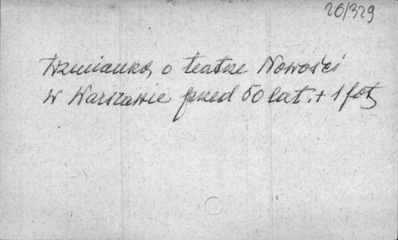 26/329
Wzmianka o teatrze Nowości
w Warszawie przed 50 lat. + 1 fot.